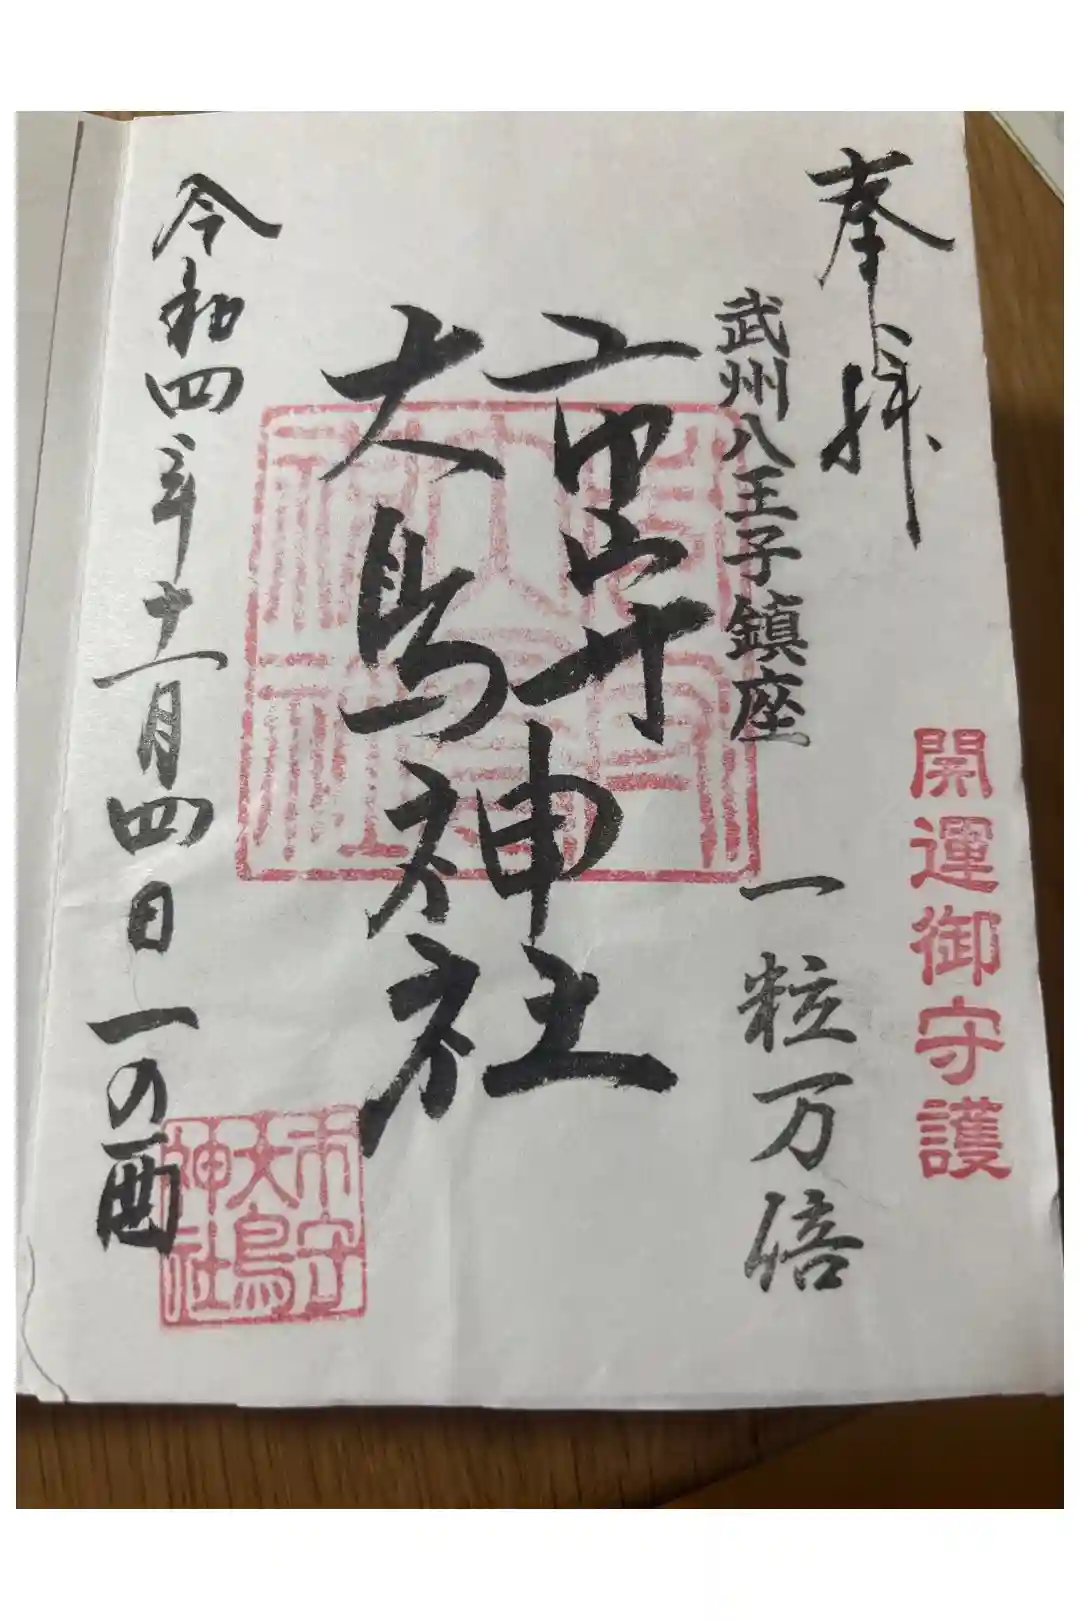 奉拝
開運御守護
武州八王子鎮座
一粒万倍
市守
大鳥
神社
令和四年十一月四日 一の酉
市守
大鳥
神社